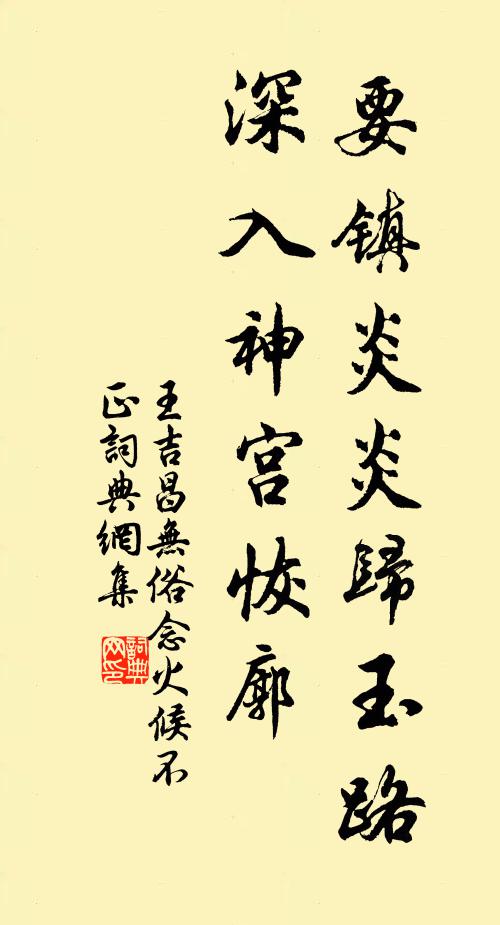 要镇炎炎歸玉路
深入神宫恢廓
王吉昌無俗念火候不
正詞典網集
詞典网印